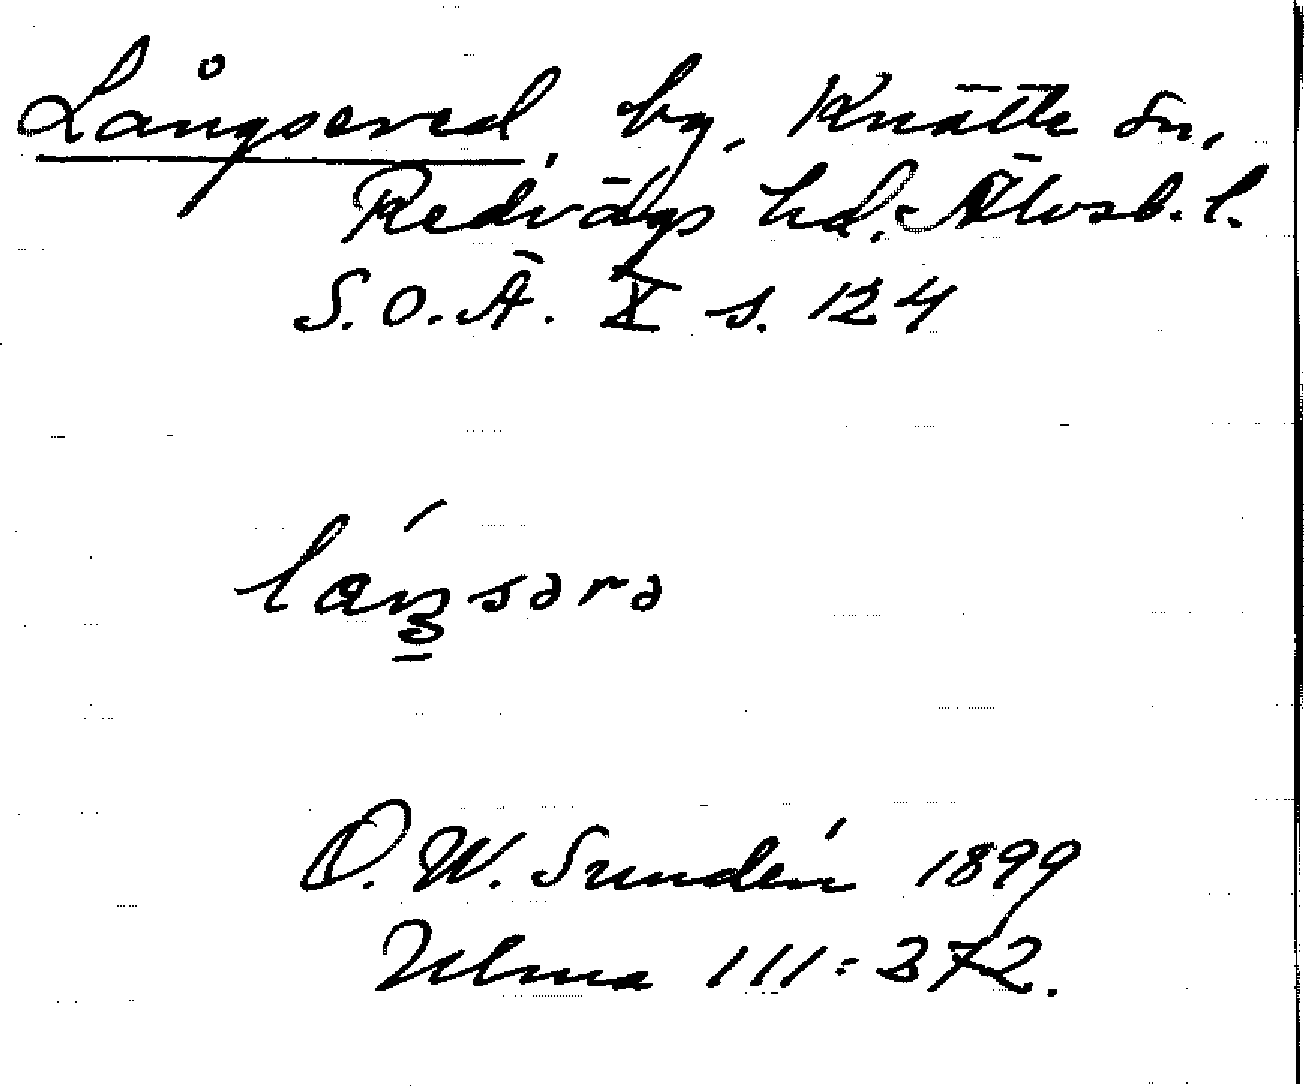 Långsered, by, Knätte sn,
Redvägs hd. Älvsb. l.
S.O.Ä. X s. 124
O. W. Sundén 1899
Ulma 111:372.